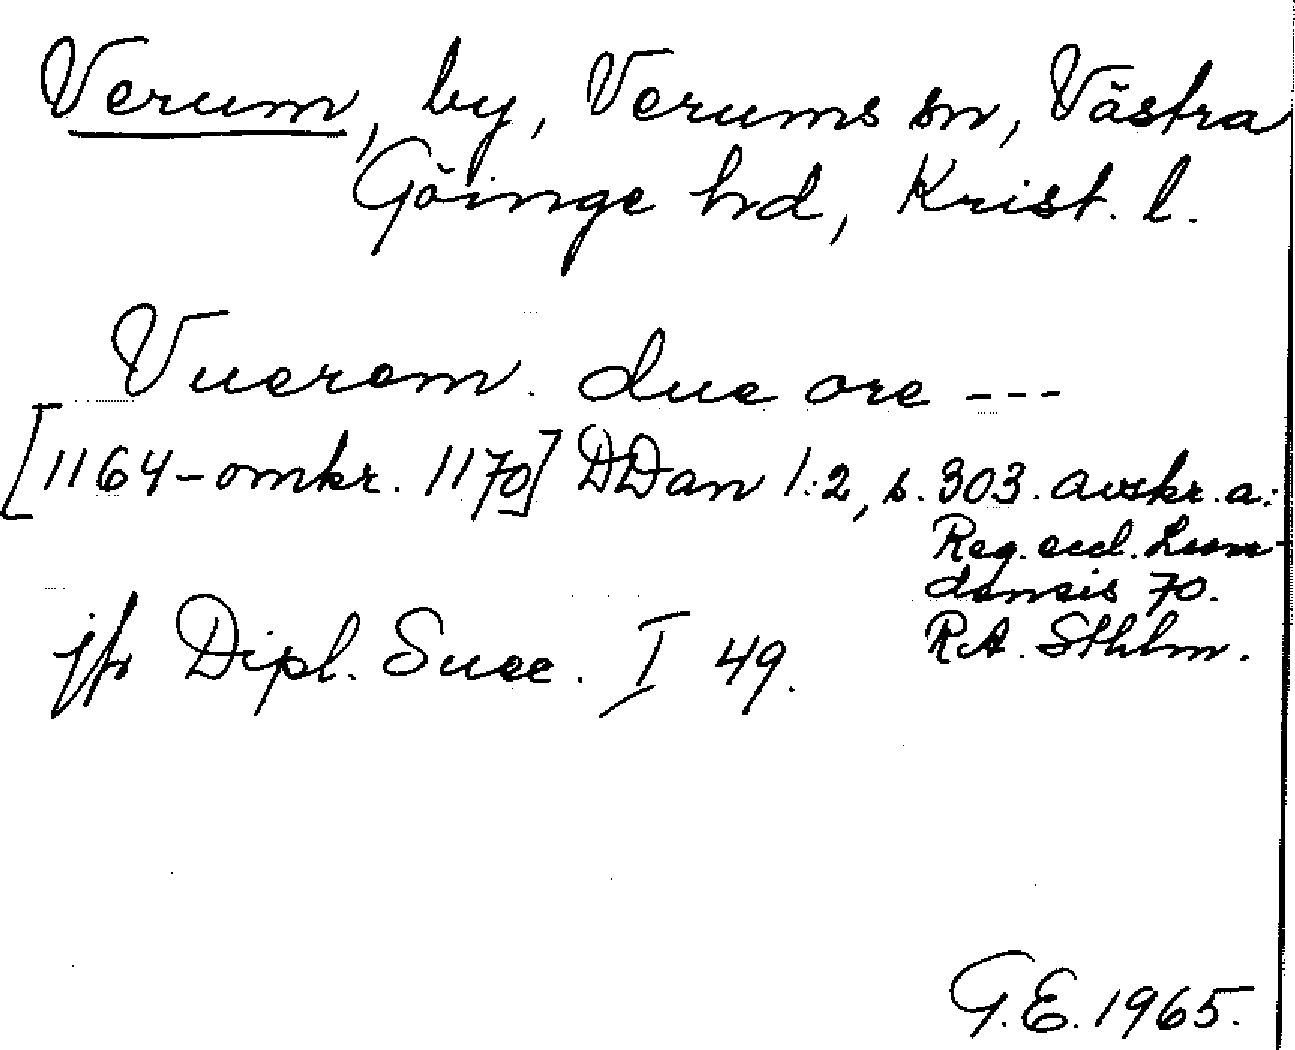 Verum, by, Verums sn, Västra
Göinge hd, Krist. l.
Vuerem. due ore ---
[1164-omkr. 1170] DDan 1:2, s. 303. avskr. a:
Reg. eccl. Lun-
densis 70.
RA. Sthlm.
jfr Dipl. Suec. I 49.
G.E. 1965.